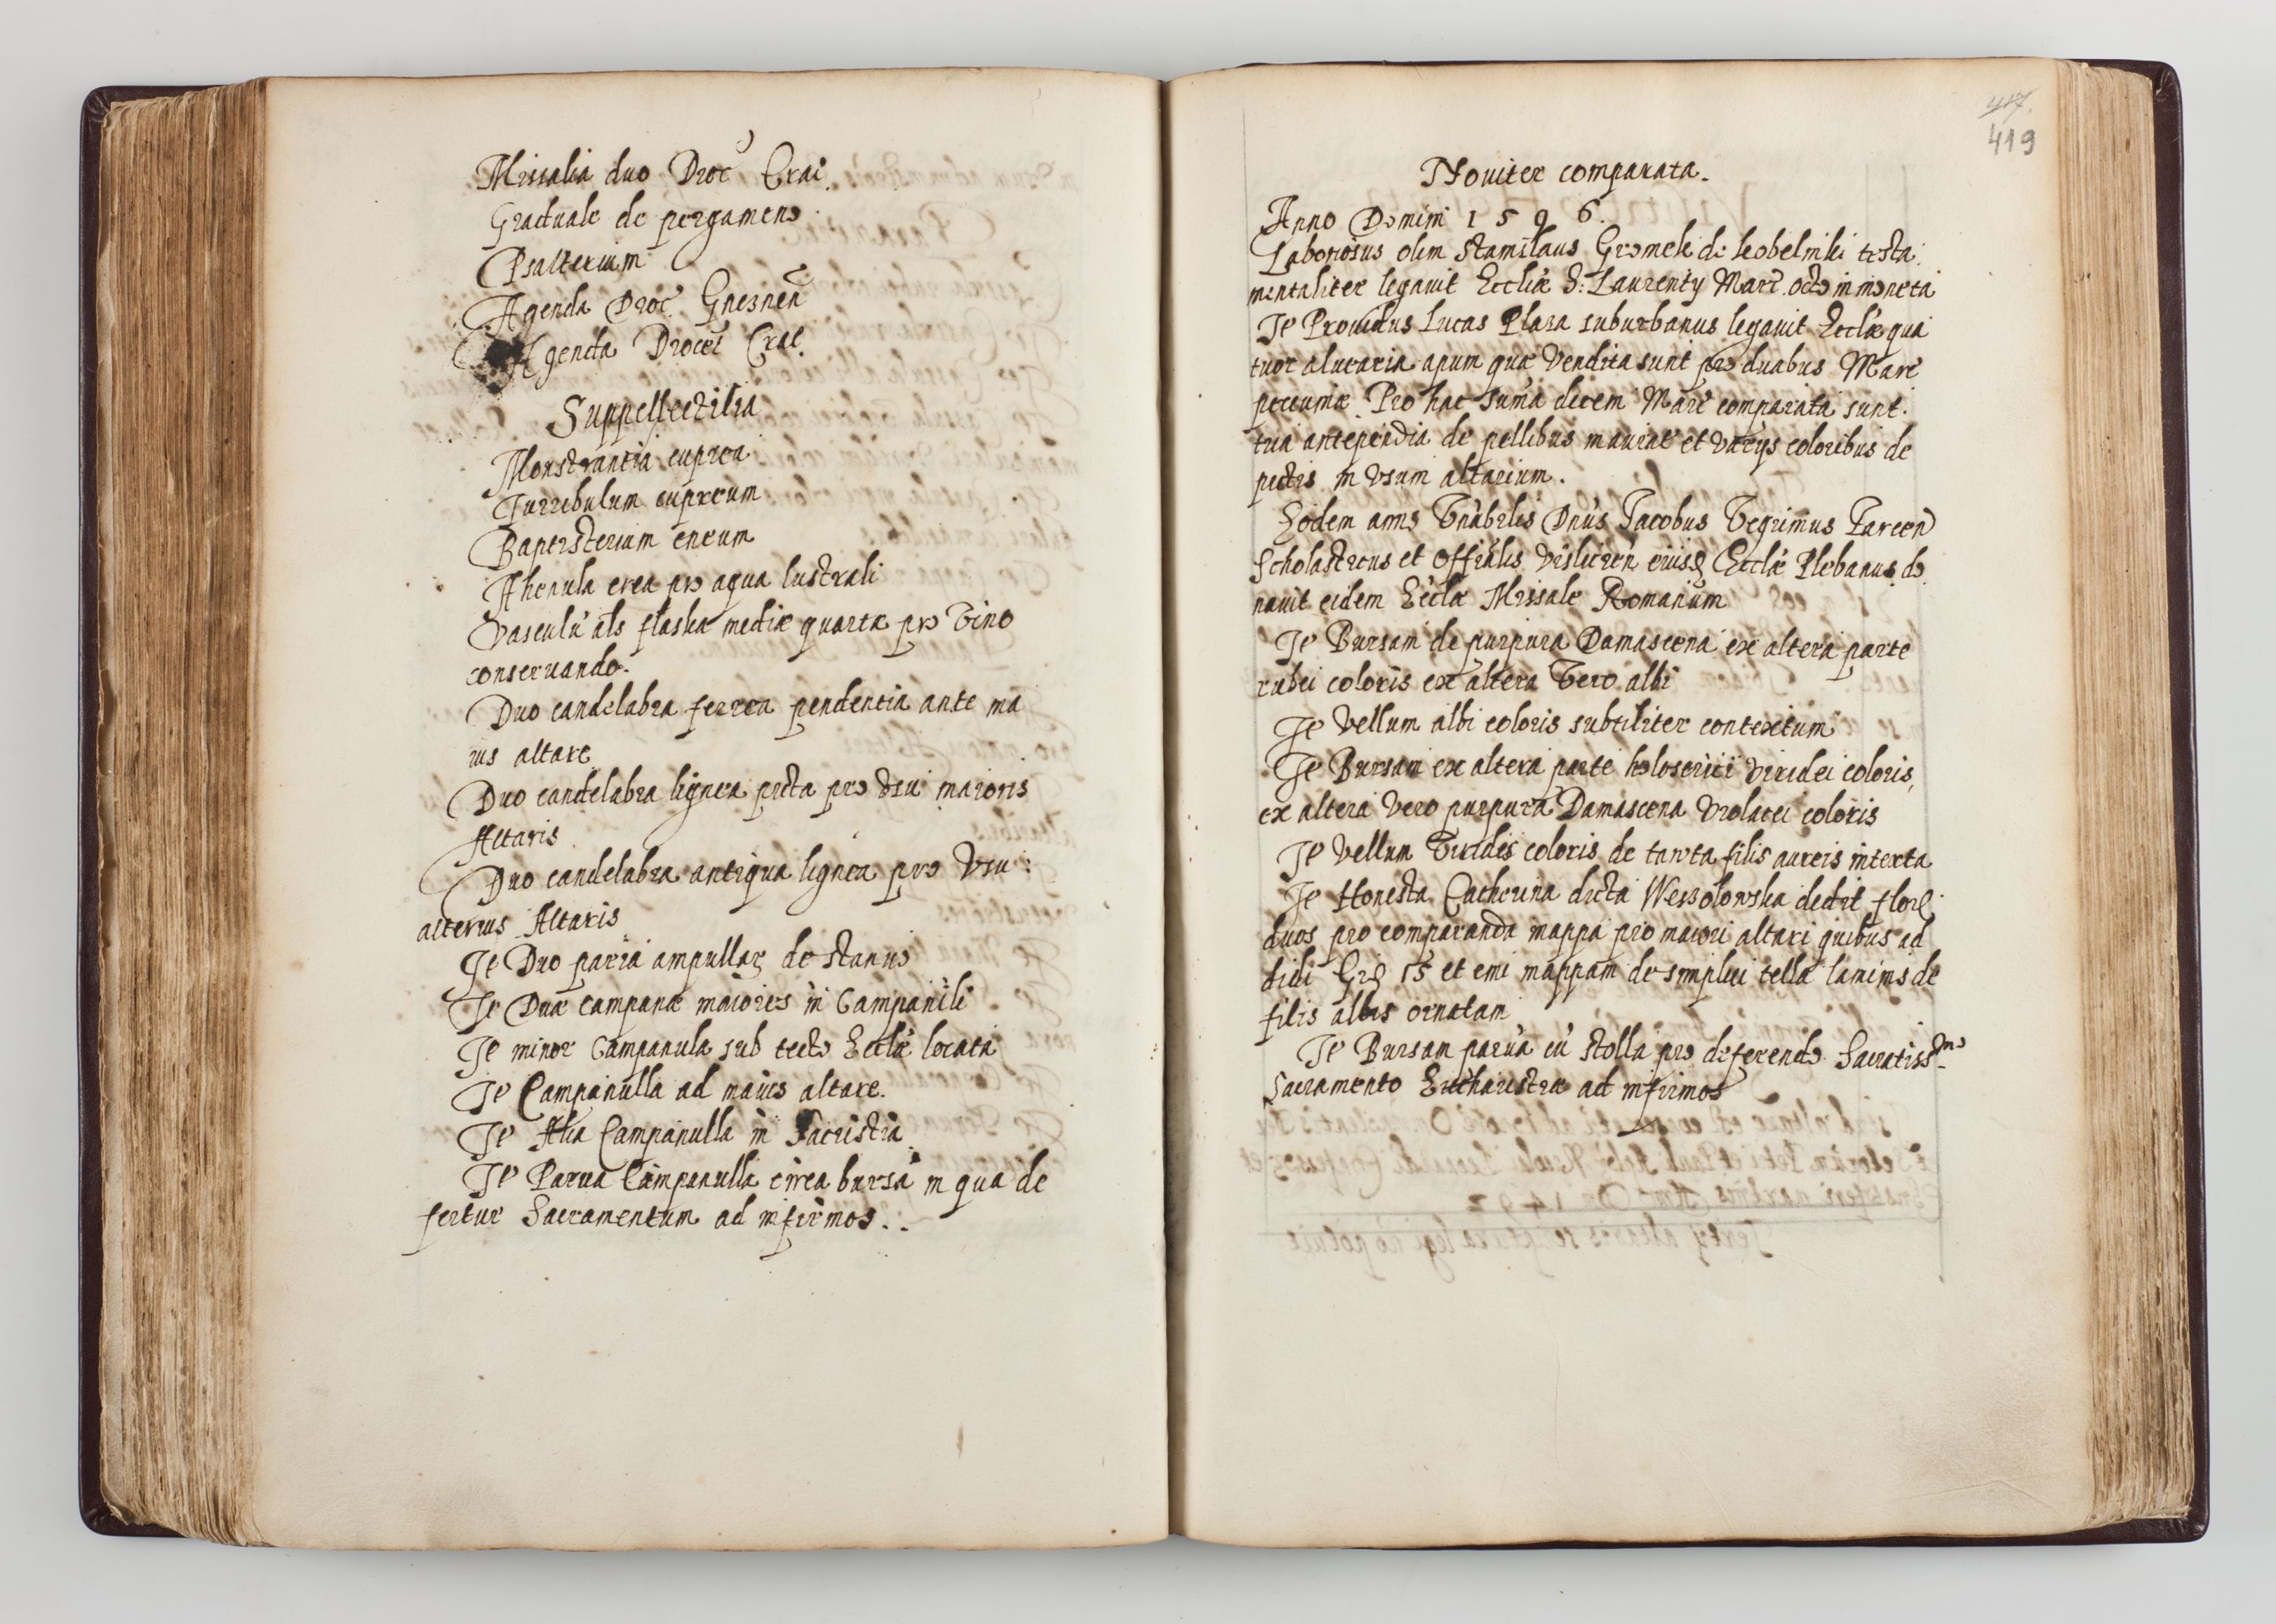 Missalia duo Dioc Crac.
Graduale de pergameno.
Psalterium
Agenda Dioc. Gneznen
Agenda Dioces Crac.
Suppellectilia
Monstrantia cuprea
Turribulum cupreum
Baptisterium eneum
Ahenula erea pro aqua lustrali
Vasculu als flasha mediæ quartæ pro Vino
conseruando.
Duo candelabra ferrea pendentia ante ma
ius altare
Duo candelabra lignea picta pro Vsu maioris
Altaris
Duo candelabra antiqua lignea pro Vsu:
alterius Altaris
It Duo paria ampullar de stanno
It Duæ campanæ maiores in Campanili
It minor Campanula sub tecto Ecclæ locata
It Campanulla ad maius altare.
It Alia Campanulla in Sacristia
It Parua Campanulla circa bursa in qua de
fertur Sacramentum ad infirmos..
417.
419
Nouiter comparata.
Anno Domini 1596.
Laboriosus olim Stanislaus Gromek de kobelniki testa
mentaliter legauit Eccliæ S: Laurentÿ Marc. octo in moneta
It Prouidus Lucas Plaza suburbanus legauit Ecclæ qua
tuor aluearia apum quæ Vendita sunt pro duabus Marc
pecuniæ. Pro hac suma decem Marc comparata sunt.
tria antependia de pellibus maurat et varÿs coloribus de
pictis in Vsum altarium.
Eodem anno Vnabilis Dnus Jacobus Vegrinus Tarcen
Scholasticus et Offialis Vislicien eiusq Ecclæ Plebanus do
nauit eidem Ecclæ Missale Romanum
It Bursam de purpura Damascena ex altera parte
rubei coloris ex altera Vero albi
It Vellum albi coloris subtiliter contextum
It Bursam ex altera parte holoserici Viridei coloris,
ex altera Vero purpura Damascena Violacei coloris
It Vellum Viridis coloris de tawta filis aureis intexta
It Honesta Catherina dicta Wessolowska dedit flore
duos pro comparanda mappa pro maiori altari quibus ad
didi Gro 15 et emi mappam de simplici tella laminis de
filis albis ornatam
It Bursam parua cu stolla pro deferendo Sacratiss mo
Sacramento Eucharistiæ ad infirmos